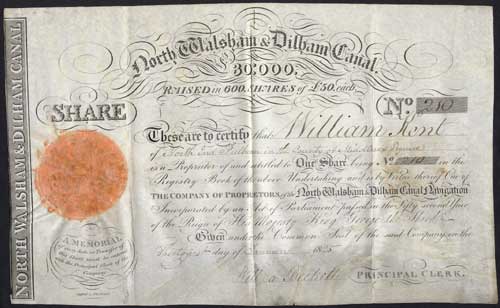 NORTH WALSHAM & DILHAM CANAL
North Walsham & Dilham Canal.
30,000,
RAISED in 600 SHARES of £50 each.
SHARE
No. 210
These are to certify that William Kent
of North End in the County of
is a Proprietor of and entitled to One Share being No. 210 in the
Registry Book of the above Undertaking and is by Virtue thereof One of
THE COMPANY OF PROPRIETORS of the North Walsham & Dilham Canal Navigation
Incorporated by an Act of Parliament passed in the Fifty second Year
of the Reign of His Majesty King George the Third
Given under the Common Seal of the said Company, the
day of 1825
PRINCIPAL CLERK.
A MEMORIAL